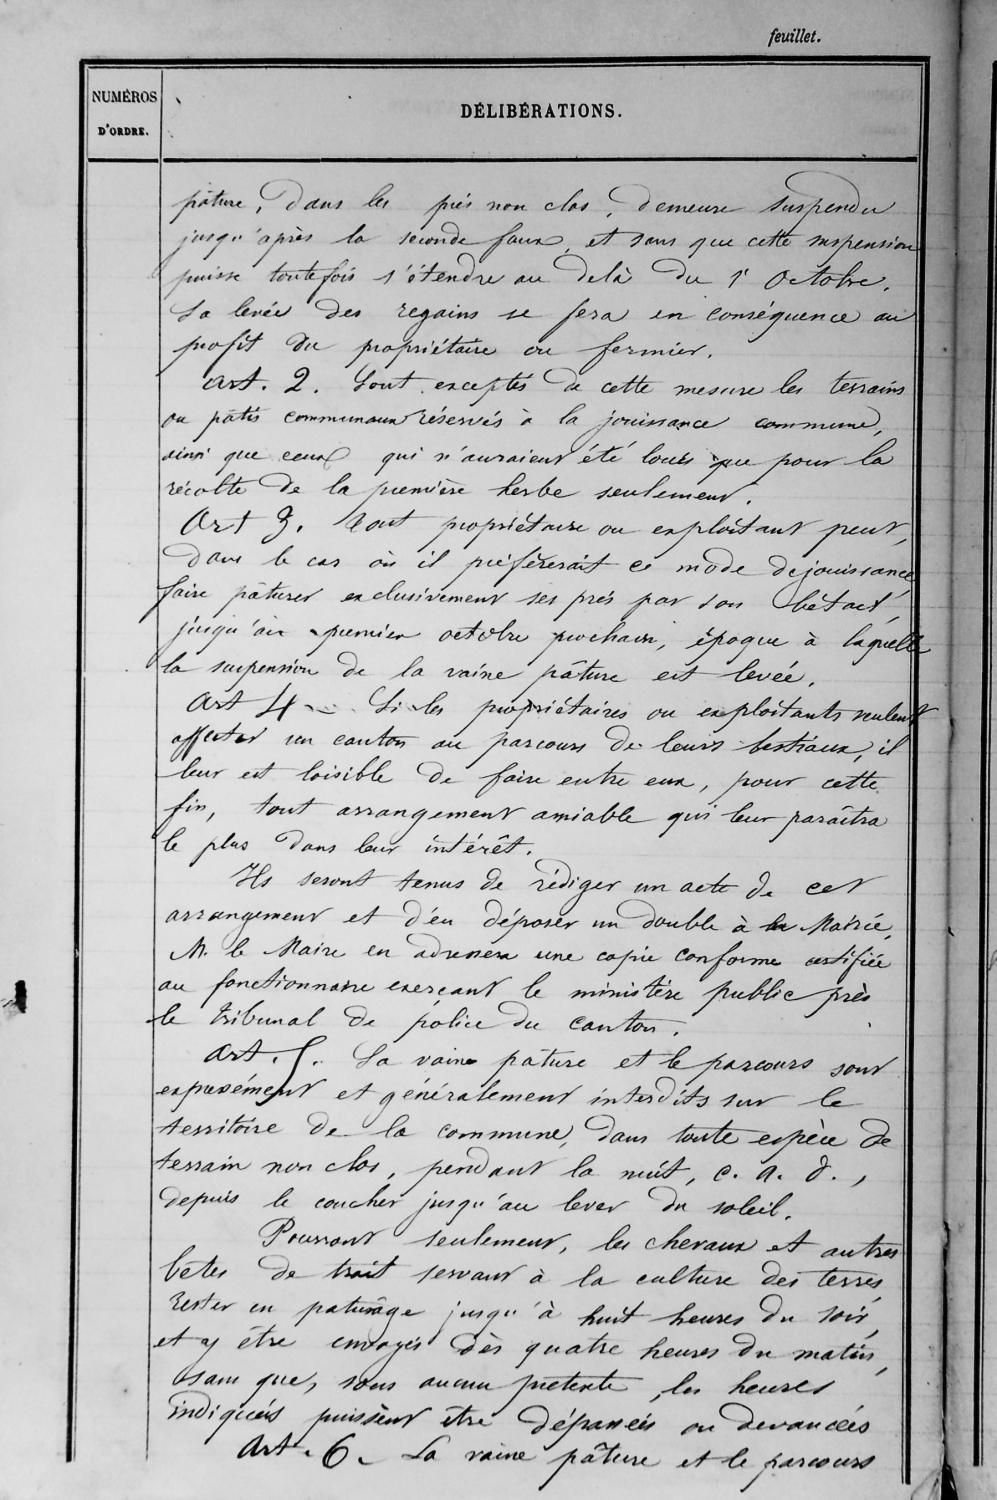 feuillet.
NUMÉROS
D'ORDRE.
DÉLIBÉRATIONS.
pâture, dans les prés non clos, demeure suspendu
jusqu'après la seconde faux, et sans que cette suspension
puisse toutefois s'étendre au delà du 1er Octobre.
La levée des regains se fera en conséquence au
profit du propriétaire ou fermier.
Art. 2. Sont exceptés de cette mesure les terrains
ou pâtis communaux réservés à la jouissance commune,
ainsi que ceux qui n'auraient été loués que pour la
récolte de la première herbe seulement.
Art 3. Tout propriétaire ou exploitant peut,
dans le cas où il préférerait ce mode de jouissance,
faire pâturer exclusivement ses prés par son bétail,
jusqu'au premier octobre prochain, époque à laquelle
la suspension de la vaine pâture est levée.
Art 4 - Si les propriétaires ou exploitants veulent
affecter un canton au parcours de leurs bestiaux, il
leur est loisible de faire entre eux, pour cette
fin, tout arrangement amiable qui leur paraîtra
le plus dans leur intérêt.
Ils seront tenus de rédiger un acte de cet
arrangement et d'en déposer un double à la Mairie,
M. le Maire en adressera une copie conforme certifiée
au fonctionnaire exerçant le ministère public près
le Tribunal de police du canton.
Art. 5. La vaine pâture et le parcours sont
expressément et généralement interdits sur le
territoire de la commune, dans toute espèce de
terrain non clos, pendant la nuit, c. a. d.,
depuis le coucher jusqu'au lever du soleil.
Pourront seulement, les chevaux et autres
bêtes de trait servant à la culture des terres,
rester en paturâge jusqu'à huit heures du soir,
et y être envoyés dès quatre heures du matin,
sans que, sous aucun prétexte, les heures
indiquées puissent être dépassées ou devancées
Art. 6. La vaine pâture et le parcours